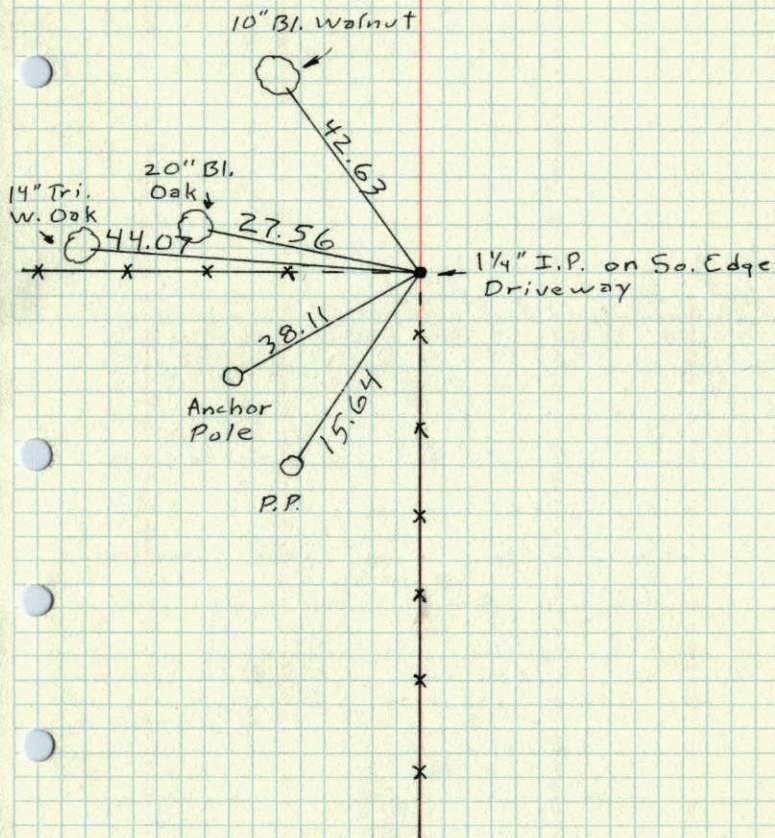 10" Bl. Walnut
42.63
20" Bl.
Oak
14" Tri.
W. Oak
44.07
27.56
1¼" I.P. on So. Edge
Driveway
38.11
Anchor
Pole
15.64
P.P.